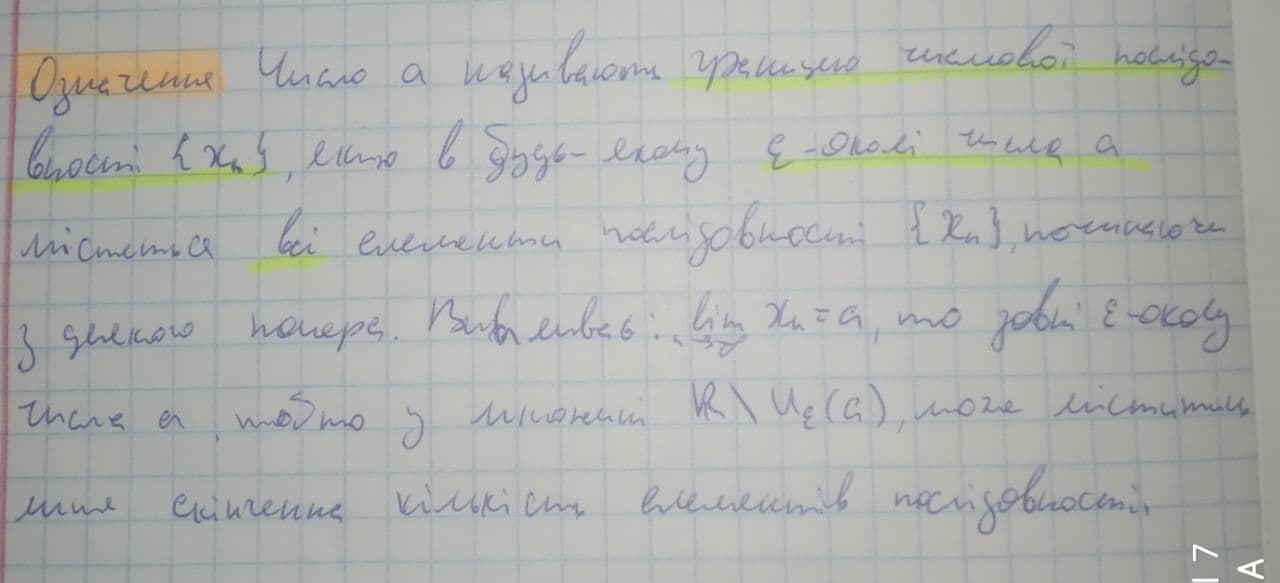 Означення Число а називають границею числової послідо-
вності {xₙ}, якщо в будь-якому ε-околі числа а
містяться всі елементи послідовності {xₙ}, починаючи
з деякого номера. Випливає: lim xₙ = a, то зовні ε-околу
n→∞
числа а, тобто у множині ℝ \ Uε(a), може міститись
лише скінченна кількість елементів послідовності.
17
A